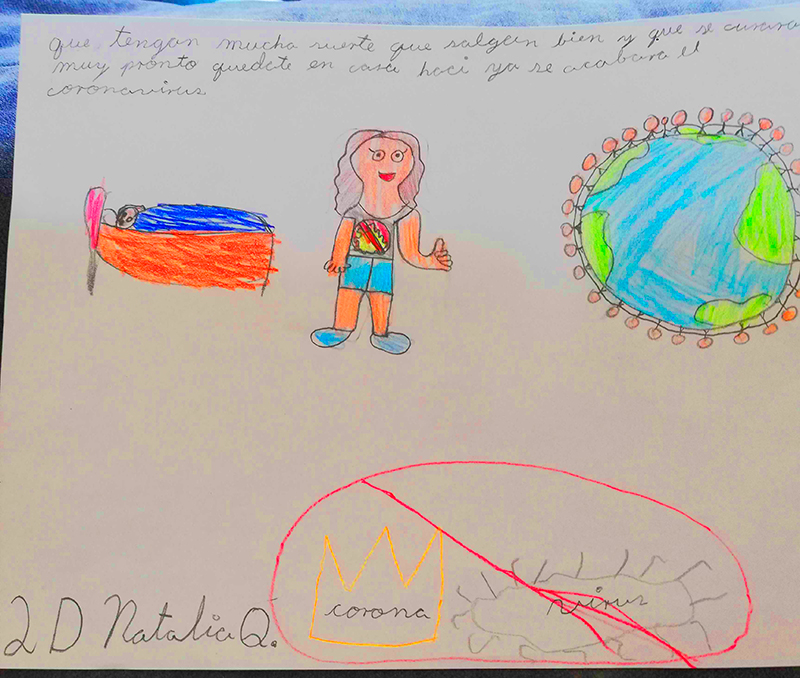 que tengan mucha suerte que salgan bien y que se curaran
muy pronto quedate en casa haci ya se acabara el
coronavirus
corona
virus
2D Natalia Q.